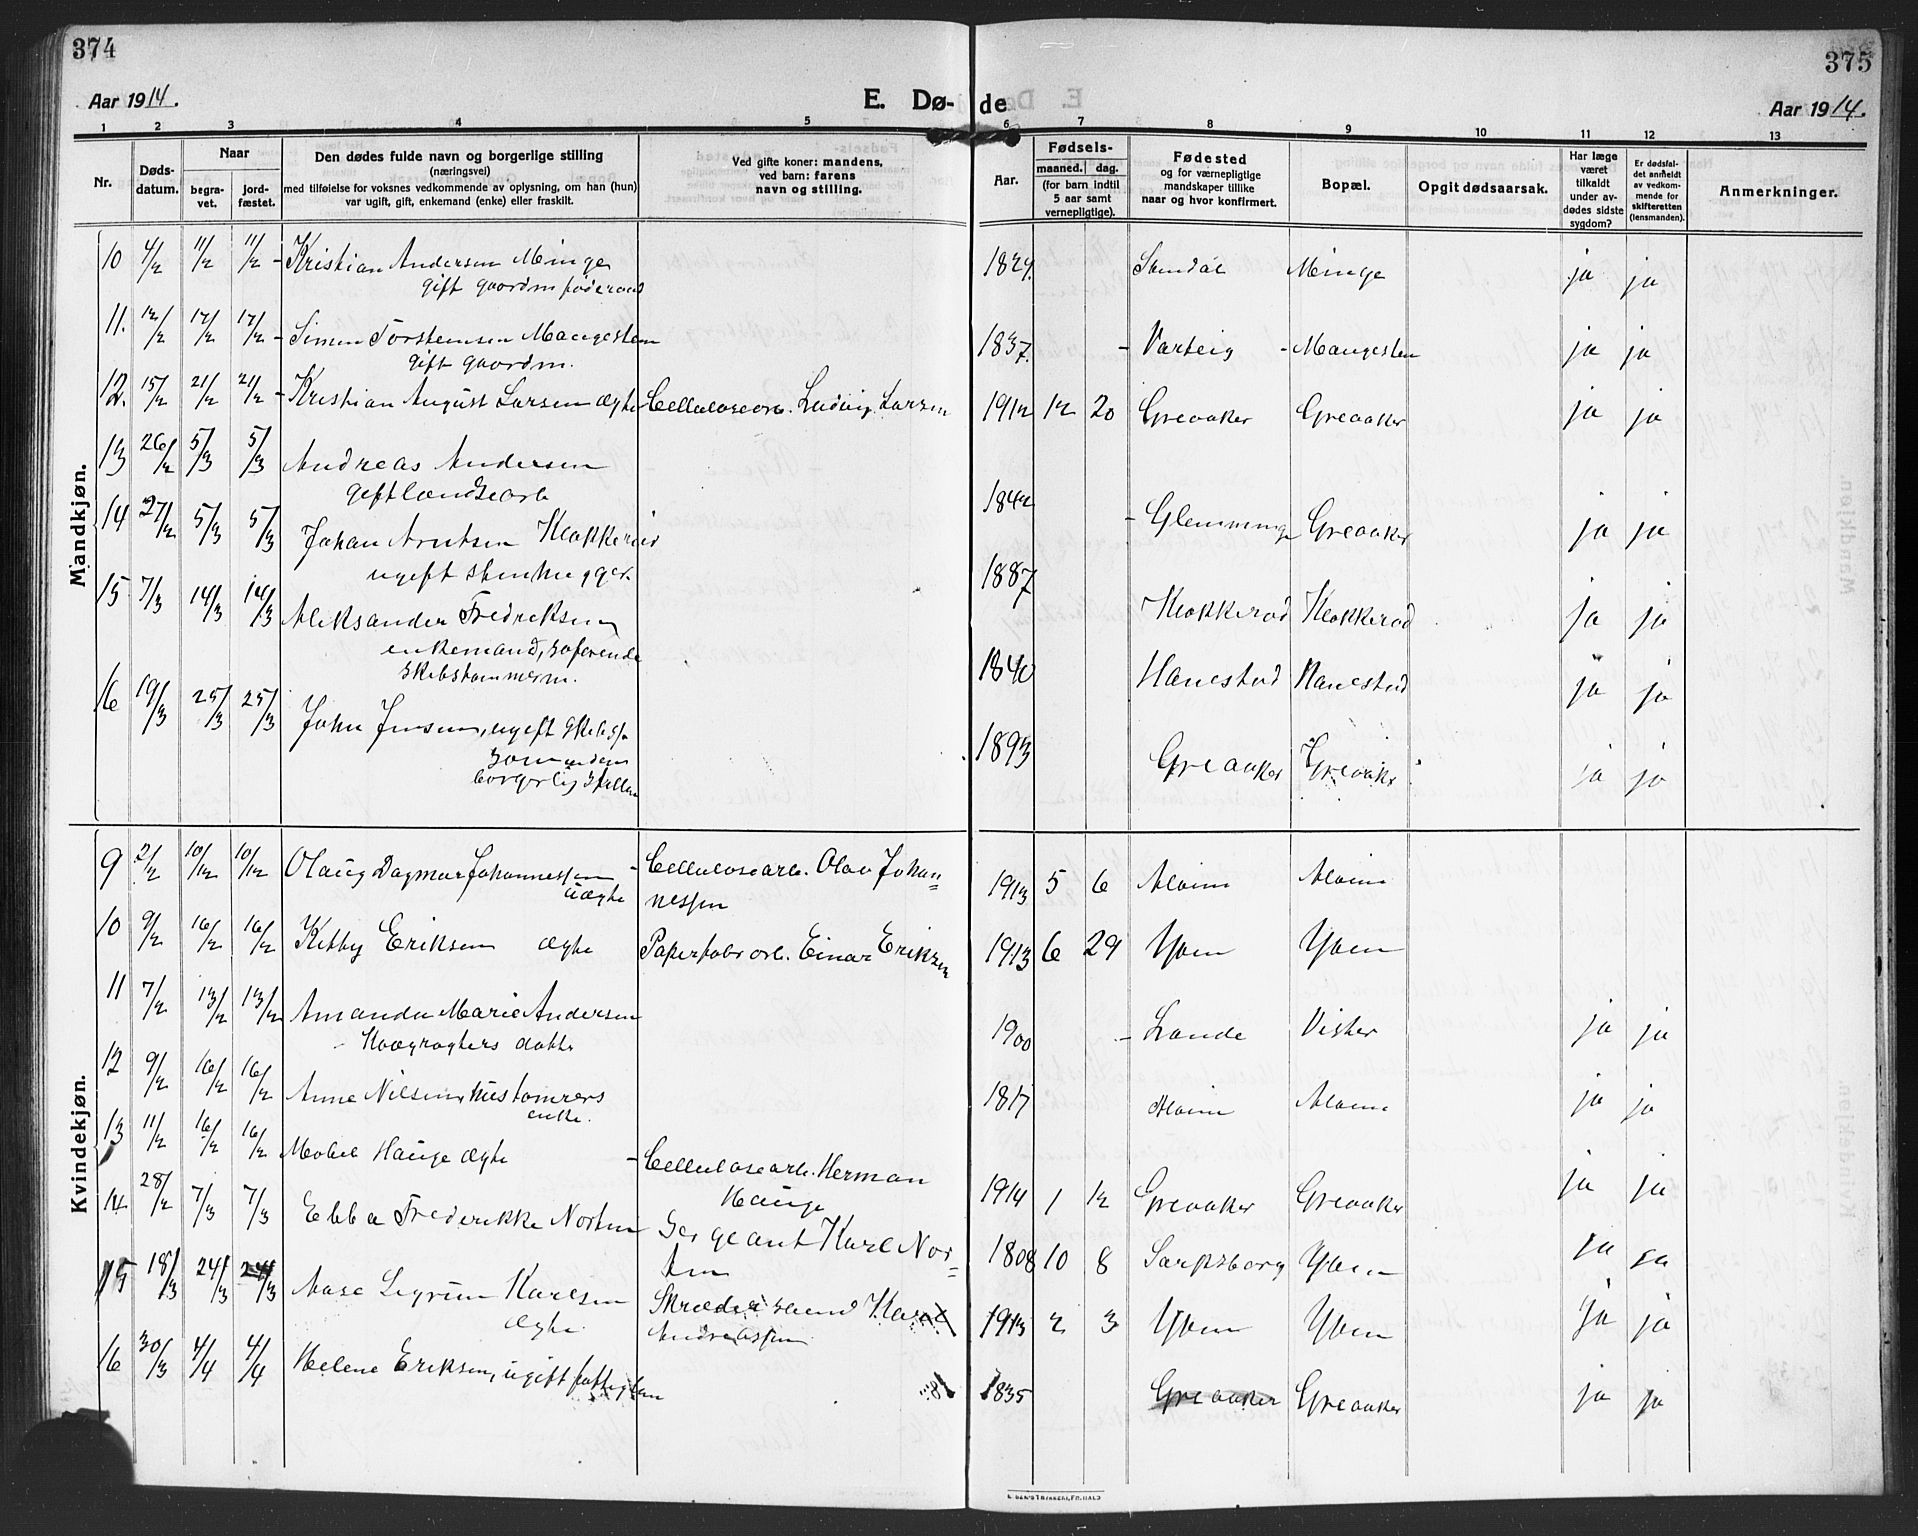 374
375
Aar 1914.
E. Dø-
de
Aar 1914.
1 2 3 4 5 6 7 8 9 10 11 12 13
Nr.
Døds-
datum.
Naar
begra-
vet.
jord-
fæstet.
Den dødes fulde navn og borgerlige stilling
(næringsvei)
med tilføielse for voksnes vedkommende av oplysning, om han (hun)
var ugift, gift, enkemand (enke) eller fraskilt.
Ved gifte koner: mandens,
ved barn: farens
navn og stilling.
Aar.
Fødsels-
maaned. dag.
(for barn indtil
5 aar samt
vernepligtige).
Fødested
og for værnepligtige
mandskaper tillike
naar og hvor konfirmert.
Bopæl.
Opgit dødsaarsak.
Har læge
været
tilkaldt
under av-
dødes sidste
sygdom?
Er dødsfal-
det anmeldt
av vedkom-
mende for
skifteretten
(lensmanden).
Anmerkninger.
Mandkjøn.
10 4/2 11/2 11/2 - Kristian Andersen Minge 1824. Minge ja ja
gift gaardm føderaad
11. 12/2 17/2 17/2 - Simen Torstensen Mangesten 1837. - Varteig - Mangesten ja ja
gift gaardm.
12. 15/2 21/2 21/2 - Kristian August Larsen ægte Cellulosearb. Ludvig Larsen 1912 12 20 Greaaker Greaaker ja ja
13 26/2 5/3 5/3 Andreas Andersen
gift landsearb 1842 - Glemminge Greaaker ja ja
14 27/2 5/3 5/3 Johan Arntsen Klokkerød
ugift stenhugger. 1887 Klokkerød Klokkerød ja ja
15 7/3 14/3 14/3 Aleksander Fredriksen
enkemand, søfarende
skibstømmerm. 1840 Hanestad Hanestad ja ja
16 19/3 25/3 25/3 John Jensen, ugift
borgerlig stilling 1893 Greaaker Greaaker ja ja
Kvindekjøn.
9 2/2 10/2 10/2 Olaug Dagmar Johannessen - Cellulosearb. Olav Johan= 1913 5 6 Alvim Alvim
uægte nessen
10 9/2 16/2 16/2 Kitty Eriksen ægte Papirfabr arb. Einar Eriksen 1913 6 29 Yven Yven
11 7/2 13/2 13/2 Amanda Marie Andersen 1900 - Lande Vister ja ja
12 9/2 16/2 16/2 Anne Nilsen, hustømrers 1817 Alvim Alvim ja ja
enke.
13 11/2 16/2 16/2 Mabel Hauge ægte - Cellulosearb. Herman 1914 1 12 Greaaker Greaaker ja ja
Hauge
14 28/2 7/3 7/3 Ebba Frederikke Norten Sergeant Karl Nor= 1808 10 8 Sarpsborg Yven ja ja
ten
15 18/3 24/3 24/3 Aase Sigrun Karlsen Skrædersvend Karl 1913 2 3 Yven Yven ja ja
ægte Andreassen
16 30/3 4/4 4/4 Helene Eriksen, ugift fattiglem 18 1835 Greaaker Greaaker ja ja